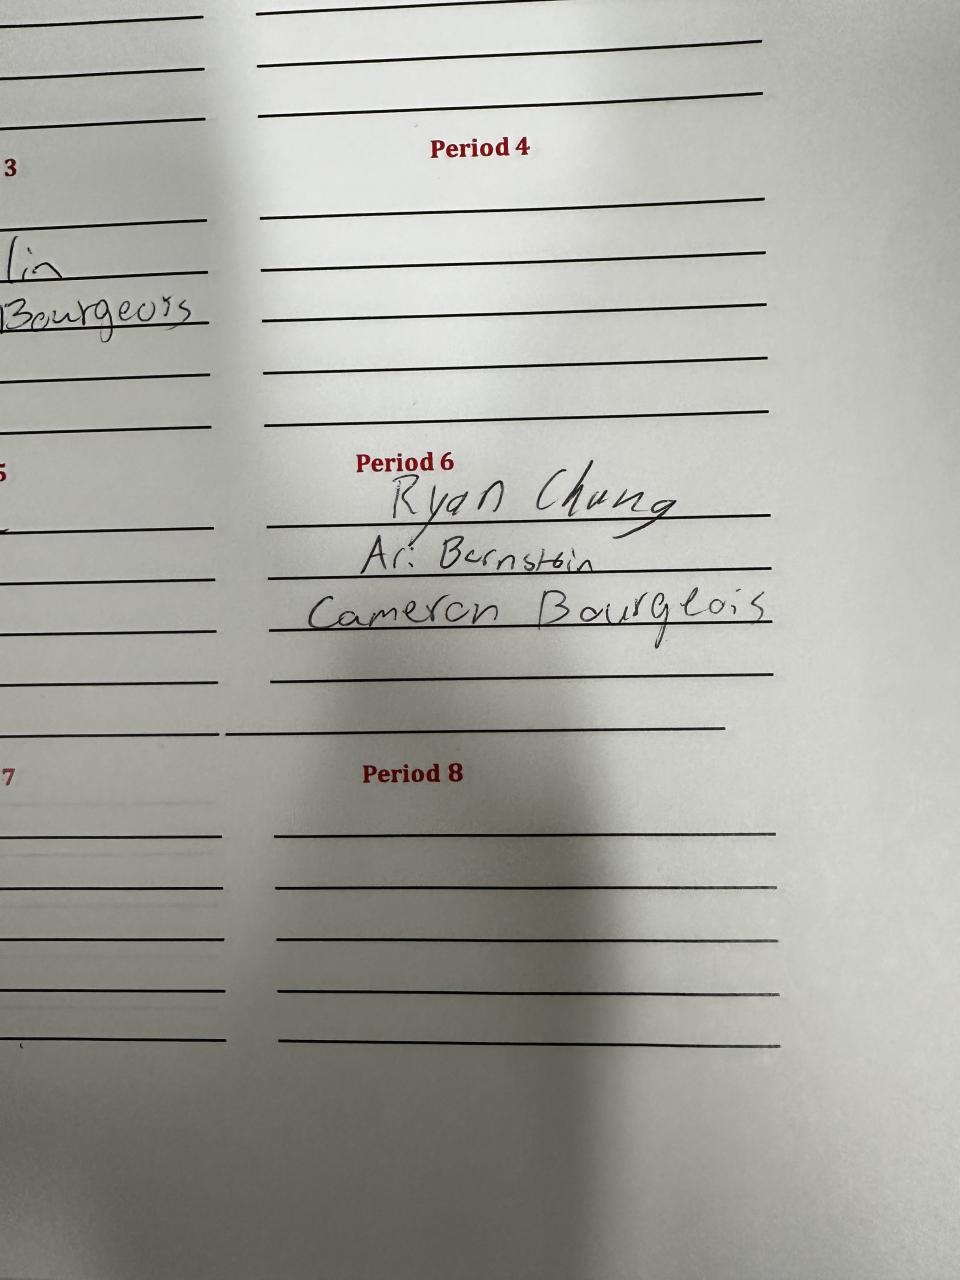 3
Period 4
lin
Bourgeois
5
Period 6
Ryan Chung
Ari Bernstein
Cameron Bourgeois
7
Period 8